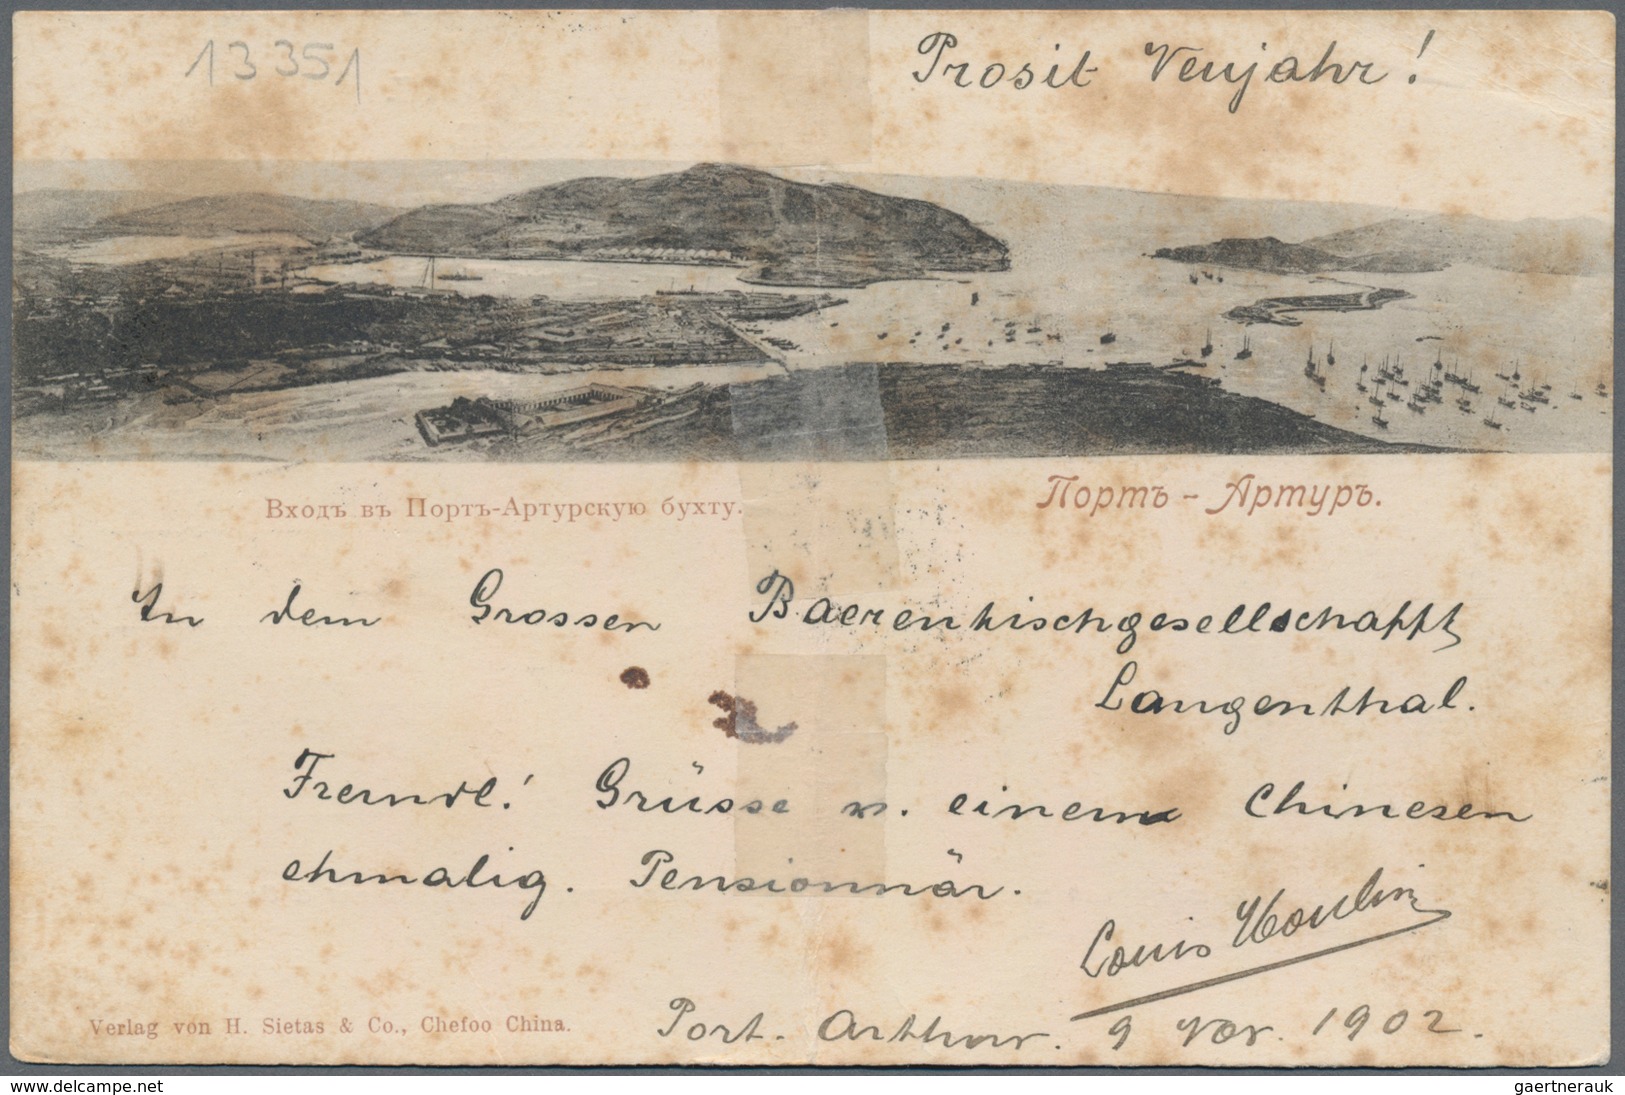 13351
Prosit Neujahr!
Входъ въ Портъ-Артурскую бухту.
Портъ - Артуръ.
In dem Grossen Baerentischgesellschafft
Langenthal.
Freundl! Grüsse v. einem Chinesen
ehmalig. Pensionnär.
Louis Moulin
Verlag von H. Sietas & Co., Chefoo China.
Port. Arthur. 9 Nov. 1902.
delcampe.net
gaertnerauk